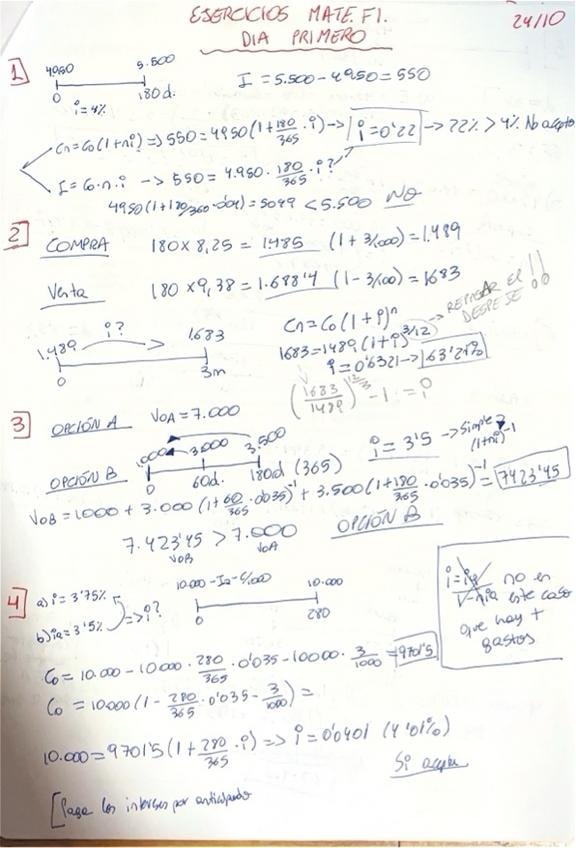 EJERCICIOS MATE. F1.
24/10
DIA PRIMERO
1
4950 5.500
0 180 d.
i=4%
I = 5.500 - 4950 = 550
Cn=Co(1+ni) => 550 = 4950(1+180/365·i) -> i=0'22 -> 22% > 4% No acepto
I = Co·n·i -> 550 = 4.950·180/365·i?
4950(1+180/360·0'04)=5049 < 5.500 NO
2
COMPRA 180 x 8,25 = 1.485 (1+3/1.000) = 1.489
Venta 180 x 9,38 = 1.688'4 (1-3/1.00) = 1683
i?
1.489 1683
0 3m
Cn=Co(1+i)^n -> REPASAR EL DESPEJE!!
1683=1489(1+i)^3/12
i=0'6321 -> 63'21%
(1683/1489)^12/3 - 1 = i
3
OPCIÓN A VOA = 7.000
OPCIÓN B
1.000 3.000 3.500
0 60d. 180d (365)
i = 3'5 -> Simple?
(1+ni)^-1
VOB = 1000 + 3.000 (1+60/365·0'035)^-1 + 3.500(1+180/365·0'035)^-1 = 7423'45
7.423'45 > 7.000
VOB VOA
OPCIÓN B
4
a) i = 3'75%
b) ia = 3'5% => i?
10.000 10.000
0 280
i = ia/1-nia no en
este caso
que hay +
gastos
Co = 10.000 - 10.000·280/365·0'035 - 10000·3/1000 = 9701'5
Co = 10.000(1 - 280/365·0'035 - 3/1000) =
10.000 = 9701'5(1+280/365·i) => i=0'0401 (4'01%)
Si acepta
[Paga los intereses por anticipado